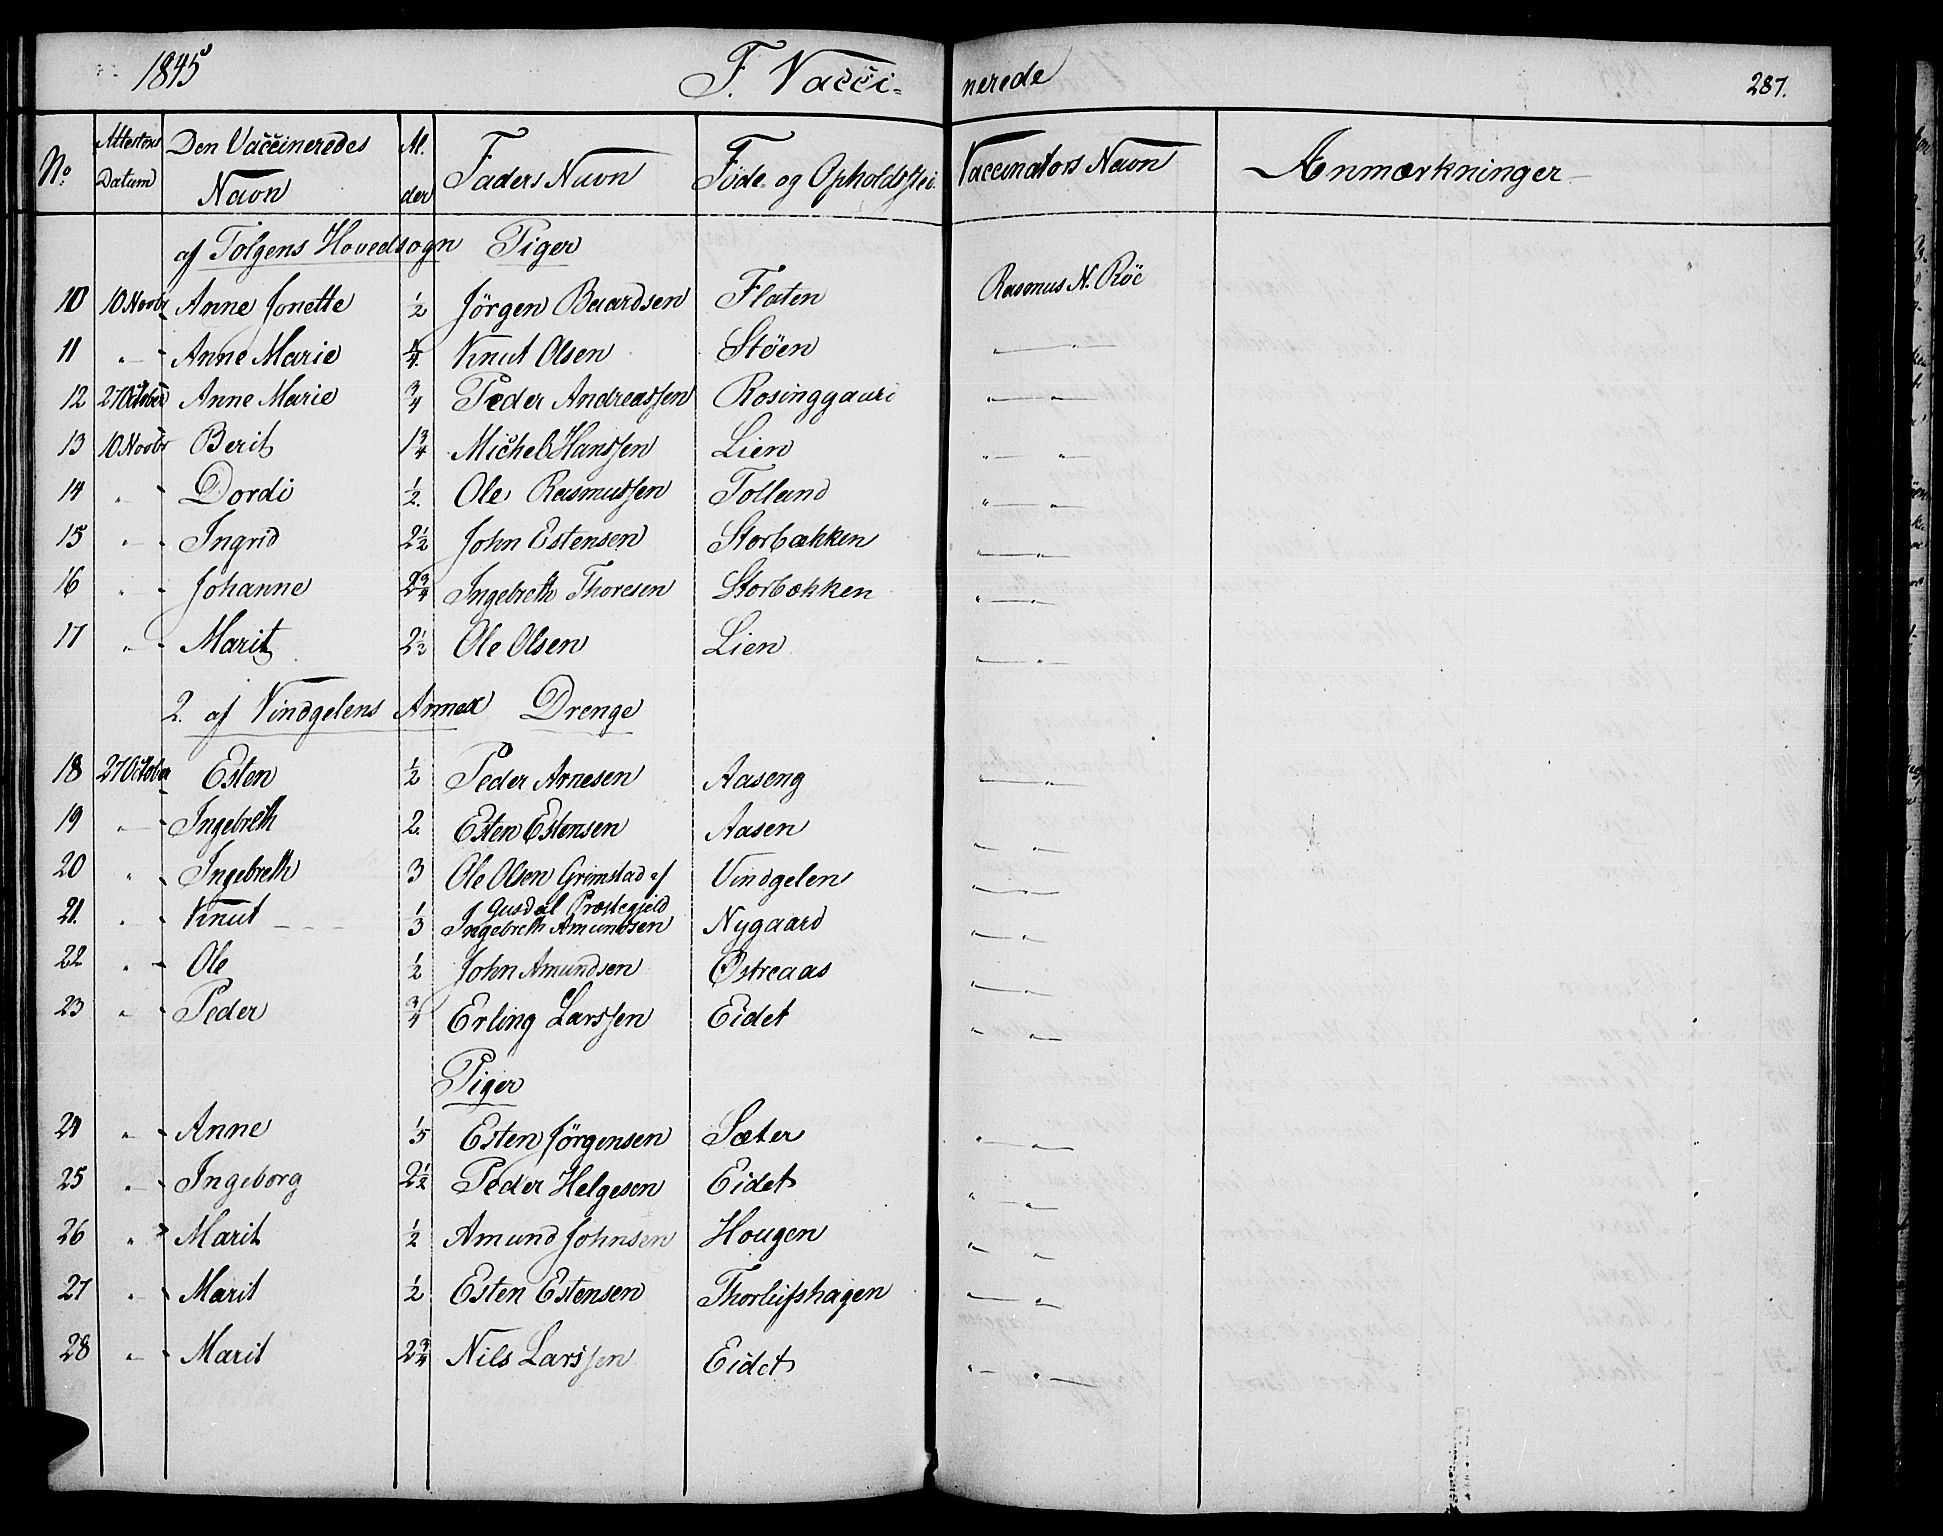 1845 F. Vacci- nerede 287.
No Attestens Datum Den Vaccineredes Navn Al. der Faders Navn Føde og Opholdsted Vaccinators Navn Anmærkninger
af Tolgens Hovedsogn Piger
10 10 Novbr Anne Jonette 1/2 Jörgen Baardsen Flaten Rasmus N. Röe
11 " - Anne Marie 1/4. Knut Olsen Stöen " "
12 27 October Anne Marie 3/4 Peder Andreassen Rosinggaard " "
13 10 Novbr Berit 1 3/4 Michel Hanssen Lien " "
14 " - Dordi 1/2. Ole Rasmussen Tolland " "
15 " - Ingrid 2 1/2 John Estensen Storbækken " "
16 " - Johanne 2 3/4 Ingebreth Thoresen Storbækken " "
17 " - Marit 2 1/3 Ole Olsen Lien " "
2. af Vindgelens Annex Drenge
18 27 October Esten 1/2 Peder Arnesen Aaseng " "
19 " - Ingebreth 2. Esten Estensen Aasen " "
20 " - Ingebreth 3 Ole Olsen Grimstad af Vindgelen " "
Gusdal Præstegjeld
21. " - Knut 1/3 Ingebreth Amundsen Nygaard " "
22 " - Ole 1/2 John Amundsen Østreaas " "
23 " - Peder 3/4 Erling Larssen Eidet " "
Piger
24 " - Anne 1/5 Esten Jörgensen Sæter " "
25 " - Ingeborg 2 1/2 Peder Helgesen Eidet " "
26 " - Marit 1/2 Amund Johnsen Hougen " "
27 " - Marit 1/2 Esten Estensen Thorleifshagen " "
28 " - Marit 2 3/4 Nils Larssen Eidet " "